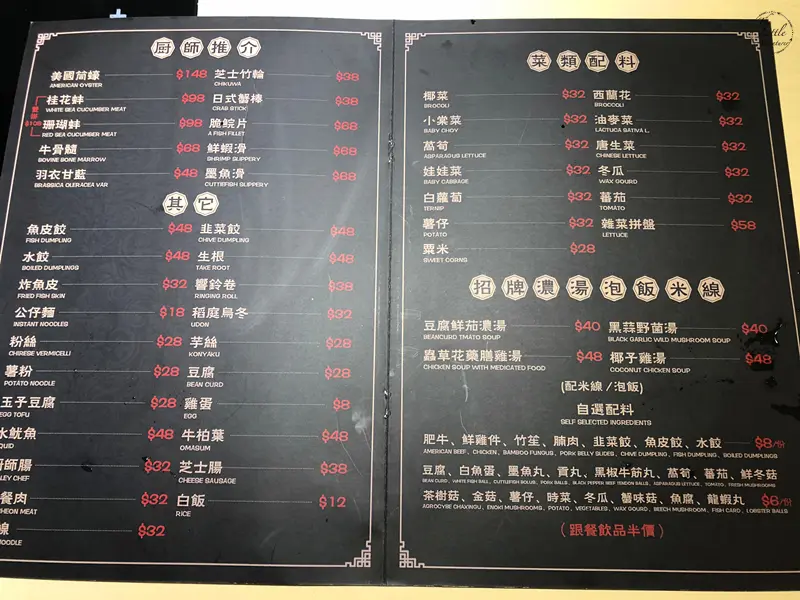 廚師推介
美國笝蠔 $148
AMERICAN OYSTER
芝士竹輪 $38
CHIKUWA
桂花蚌 $98
WHITE SEA CUCUMBER MEAT
日式蟹棒 $38
CRAB STICK
雙拼 $108
珊瑚蚌 $98
RED SEA CUCUMBER MEAT
脆鯇片 $68
A FISH FILLET
牛骨髓 $88
BOVINE BONE MARROW
鮮蝦滑 $68
SHRIMP SLIPPERY
羽衣甘藍 $48
BRASSICA OLERACEA VAR
墨魚滑 $88
CUTTLEFISH SLIPPERY
其它
魚皮餃 $48
FISH DUMPLING
韭菜餃 $48
CHIVE DUMPLING
水餃 $48
BOILED DUMPLINGS
生根 $48
TAKE ROOT
炸魚皮 $32
FRIED FISH SKIN
響鈴卷 $38
RINGING ROLL
公仔麵 $18
INSTANT NOODLES
稻庭烏冬 $32
UDON
粉絲 $28
CHIRESE VERMICELLI
芋絲 $28
KONYAKU
薯粉 $28
POTATO NOODLE
豆腐 $28
BEAN CURD
玉子豆腐 $28
EGG TOFU
雞蛋 $8
EGG
水魷魚 $48
QUID
牛柏葉 $48
OMASUM
師腸 $32
LEY CHEF
芝士腸 $38
CHEESE SAUSAGE
餐肉 $32
CHEON MEAT
白飯 $12
RICE
線 $32
NOODLE
菜類配料
椰菜 $32
BROCOLI
西蘭花 $32
BROCCOLI
小棠菜 $32
BABY CHOY
油麥菜 $32
LACTUCA SATIVA L.
萵筍 $32
ASPARAGUS LETTUCE
唐生菜 $32
CHINESE LETTUCE
娃娃菜 $32
BABY CABBAGE
冬瓜 $32
WAX GOURD
白蘿蔔 $32
TERNIP
蕃茄 $32
TOMATO
薯仔 $32
POTATO
雜菜拼盤 $58
LETTUCE
粟米 $28
SWEET CORNS
招牌濃湯泡飯米線
豆腐鮮茄濃湯 $40
BEANCURD TMATO SOUP
黑蒜野菌湯 $40
BLACK GARLIC WILD MUSHROOM SOUP
蟲草花藥膳雞湯 $48
CHICKEN SOUP WITH MEDICATED FOOD
椰子雞湯 $48
COCONUT CHICKEN SOUP
(配米線/泡飯)
自選配料
SELF SELECTED INGREDIENTS
肥牛、鮮雞件、竹笙、腩肉、韭菜餃、魚皮餃、水餃 $8/份
AMERICAN BEEF、CHICKEN、BAMBOO FUNGUS、PORK BELLY SLIDES、CHIVE DUMPLING、FISH DUMPLING、BOILED DUMPLINGS
豆腐、白魚蛋、墨魚丸、貢丸、黑椒牛筋丸、萵筍、蕃茄、鮮冬菇
BEAN CURD、WHITE FISH BALL、CUTTLEFISH BOLUS、PORK BALLS、BLACK PEPPER BEEF TENDON BALLS、ASPARAGUS LETTUCE、TOMATO、FRESH MUSHROOMS
茶樹菇、金菇、薯仔、時菜、冬瓜、蟹味菇、魚腐、龍蝦丸 $6/份
AGROCYBE CHAXINGU、ENOKI MUSHROOMS、POTATO、VEGETABLES、WAX GOURD、BEECH MUSHROOM、FISH CARD、LOBSTER BALLS
(跟餐飲品半價)